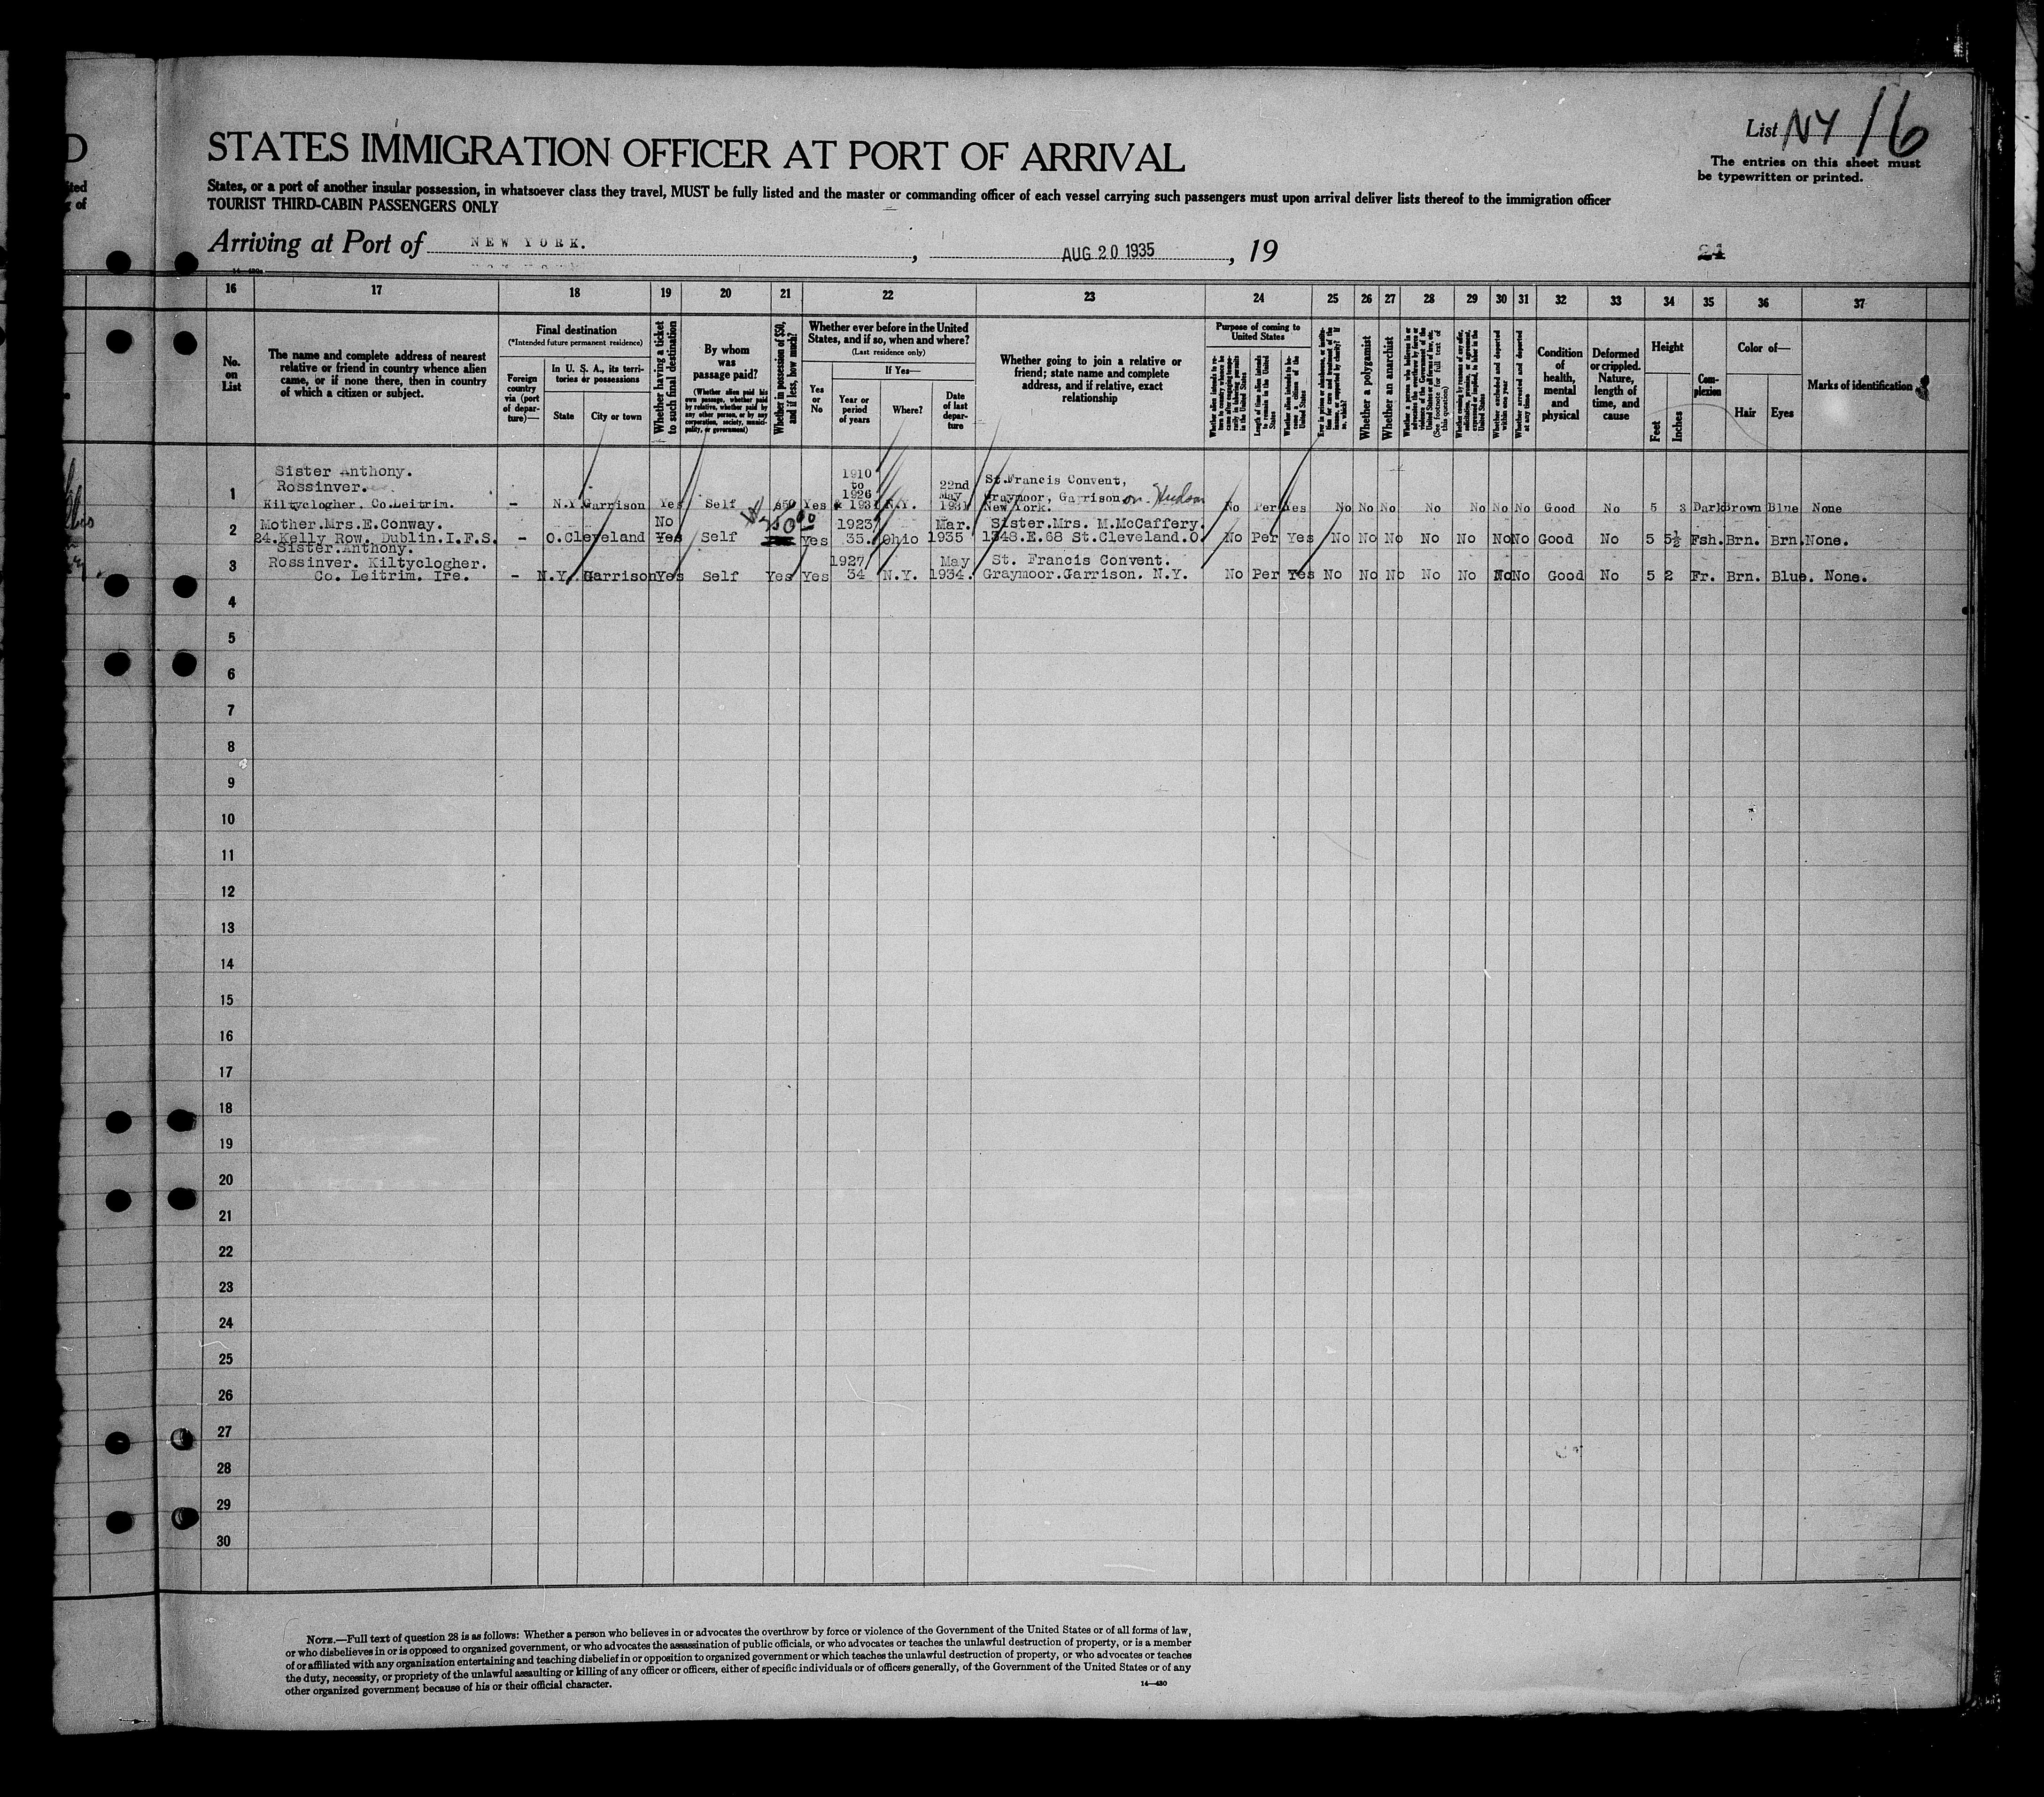 D
ted
of
List NY 16
STATES IMMIGRATION OFFICER AT PORT OF ARRIVAL
The entries on this sheet must
be typewritten or printed.
States, or a port of another insular possession, in whatsoever class they travel, MUST be fully listed and the master or commanding officer of each vessel carrying such passengers must upon arrival deliver lists thereof to the immigration officer
TOURIST THIRD-CABIN PASSENGERS ONLY
Arriving at Port of NEW YORK. , AUG 20 1935 , 19
21
16 17 18 19 20 21 22 23 24 25 26 27 28 29 30 31 32 33 34 35 36 37
No.
on
List
The name and complete address of nearest
relative or friend in country whence alien
came, or if none there, then in country
of which a citizen or subject.
Final destination
(*Intended future permanent residence)
Foreign
country
via (port
of depar-
ture)—
In U. S. A., its terri-
tories or possessions
State
City or town
Whether having a ticket
to such final destination
By whom
was
passage paid?
(Whether alien paid his
own passage, whether paid
by relative, whether paid by
any other person, or by any
corporation, society, munici-
pality, or government)
Whether in possession of $50,
and if less, how much?
Whether ever before in the United
States, and if so, when and where?
(Last residence only)
Yes
or
No
If Yes—
Year or
period
of years
Where?
Date
of last
depar-
ture
Whether going to join a relative or
friend; state name and complete
address, and if relative, exact
relationship
Purpose of coming to
United States
Length of time alien intends
to remain in the United
States
Whether alien intends to be-
come a citizen of the
United States
Whether a polygamist
Whether an anarchist
(See footnote for full text of
this question)
Whether excluded and deported
within one year
Whether arrested and deported
at any time
Condition
of
health,
mental
and
physical
Deformed
or crippled.
Nature,
length of
time, and
cause
Height
Feet
Inches
Com-
plexion
Color of—
Hair
Eyes
Marks of identification
1 Sister Anthony.
Rossinver.
Kiltyclogher, Co.Leitrim. - N.Y. Garrison Yes Self $50 Yes 1910 to 1926 & 1931 N.Y. 22nd May 1931 St.Francis Convent,
Graymoor, Garrison on Hudson
New York. No Per Yes No No No No No No No Good No 5 3 Dark Brown Blue None
2 Mother.Mrs.E.Conway.
24.Kelly Row. Dublin.I.F.S. - O. Cleveland No Yes Self $250.00 Yes 1923 35. Ohio Mar. 1935 Sister.Mrs. M.McCaffery.
1348.E.68 St.Cleveland.O. No Per Yes No No No No No No No Good No 5 5½ Fsh. Brn. Brn. None.
3 Sister.Anthony.
Rossinver. Kiltyclogher.
Co. Leitrim. Ire. - N.Y. Garrison Yes Self Yes Yes 1927 34 N.Y. May 1934. St. Francis Convent.
Graymoor.Garrison. N.Y. No Per Yes No No No No No No No Good No 5 2 Fr. Brn. Blue. None.
4
5
6
7
8
9
10
11
12
13
14
15
16
17
18
19
20
21
22
23
24
25
26
27
28
29
30
NOTE.—Full text of question 28 is as follows: Whether a person who believes in or advocates the overthrow by force or violence of the Government of the United States or of all forms of law,
or who disbelieves in or is opposed to organized government, or who advocates the assassination of public officials, or who advocates or teaches the unlawful destruction of property, or is a member
of or affiliated with any organization entertaining and teaching disbelief in or opposition to organized government or which teaches the unlawful destruction of property, or who advocates or teaches
the duty, necessity, or propriety of the unlawful assaulting or killing of any officer or officers, either of specific individuals or of officers generally, of the Government of the United States or of any
other organized government because of his or their official character.
14—430